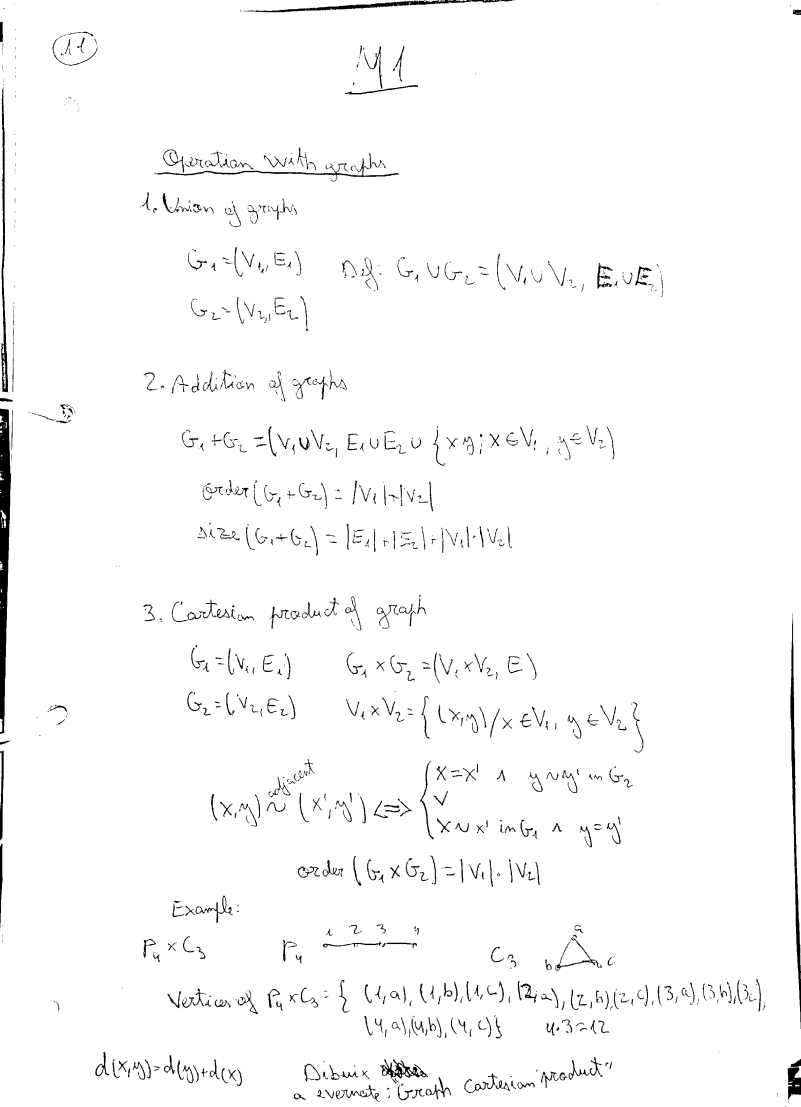 11
M1
Operation with graphs
1. Union of graphs
G₁=(V₁,E₁) Def: G₁∪G₂=(V₁∪V₂, E₁∪E₂)
G₂=(V₂,E₂)
2. Addition of graphs
G₁+G₂=(V₁∪V₂, E₁∪E₂∪{xy; x∈V₁, y∈V₂)
order(G₁+G₂)=|V₁|+|V₂|
size(G₁+G₂)=|E₁|+|E₂|+|V₁|·|V₂|
3. Cartesian product of graph
G₁=(V₁,E₁) G₁×G₂=(V₁×V₂, E)
G₂=(V₂,E₂) V₁×V₂={(x,y)/x∈V₁, y∈V₂}
adjacent
x=x' ∧ y∼y' in G₂
(x,y)∼(x',y')⇔{ ∨
x∼x' in G₁ ∧ y=y'
order(G₁×G₂)=|V₁|·|V₂|
Example:
P₄×C₃ P₄ 1 2 3 4 C₃ a b c
Vertices of P₄×C₃={(1,a),(1,b),(1,c),(2,a),(2,b),(2,c),(3,a),(3,b),(3c),
(4,a),(4,b),(4,c)} 4·3=12
d(x,y)=d(y)+d(x) Dibuix
a evernote: Graph Cartesian product"